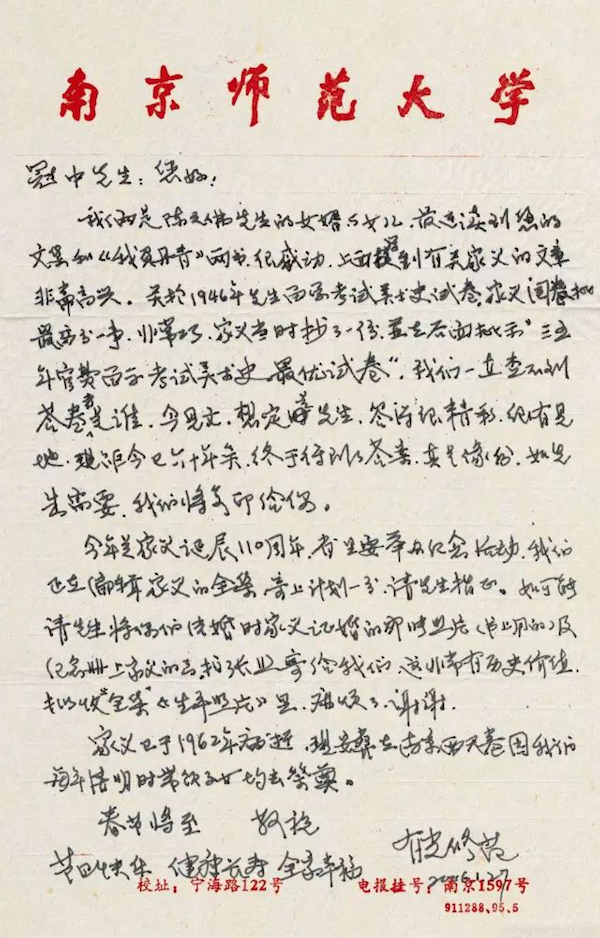 南京师范大学
冠中先生：您好！
我们俩是陈之佛先生的女婿与女儿，最近读到您的
文墨和《我负丹青》两书，很感动，上面提到有关家父的文章
非常高兴。关于1946年先生留学考试美术史试卷，家父阅卷批
最高分一事，非常巧，家父当时抄了一份，并在后面批示"三五
年官费留学考试美术史最优试卷"，我们一直查不到
答卷者是谁，今见文，想定是先生，答得很精彩，很有见
地，现距今已六十年矣，终于得到了答案，真是缘份，如先
生需要，我们将复印给您。
今年是家父诞辰110周年，省里要举办纪念活动，我们
正在编辑家父的全集，寄上计划一份，请先生指正。如可能
请先生将你们结婚时家父证婚的那时照片（书上用的）及
纪念册上家父的画，拍张照寄给我们，这非常有历史价值，
拟收"全集"《生平照片》里，麻烦了，谢谢。
家父已于1962年病逝，现安葬在南京西天巷，我们
每年清明时带领子女均去祭奠。
春节将至 敬祝
节日快乐 健康长寿 全家幸福
李有光 陈修范
2006.1.27
校址：宁海路122号 电报挂号：南京1597号
911288.95.5